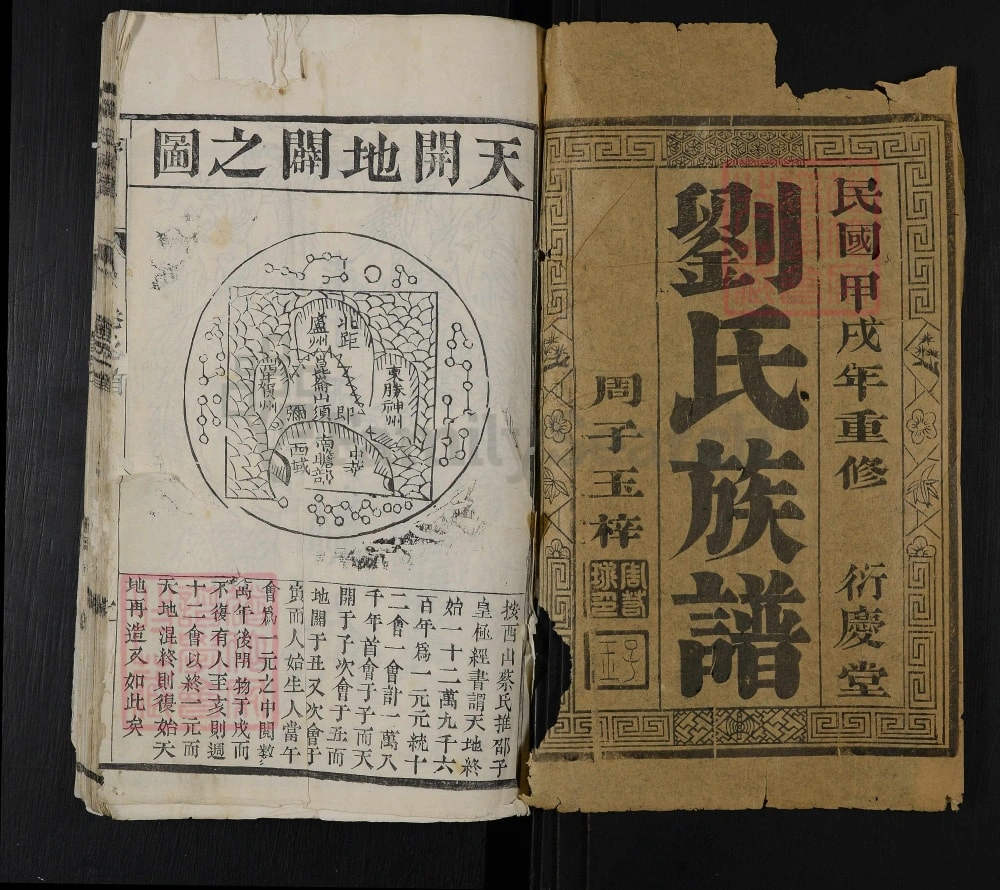 民國甲戌年重修 衍慶堂
劉氏族譜
周子玉梓
天開地闢之圖
北距
盧州
崑崙山須
即
彌
東勝神州
西牛賀州
南瞻部
中華
西域
按西山蔡氏推邵子
皇極經書謂天地終
始一十二萬九千六
百年為一元元統十
二會一會計一萬八
千年首會子子而天
開于子次會于丑而
地闢于丑又次會于
寅而人始生人當午
會為一元之中閱數
萬年後閉物于戌而
不復有人至亥則週
十二會以終一元而
天地混終則復始天
地再造又如此矣